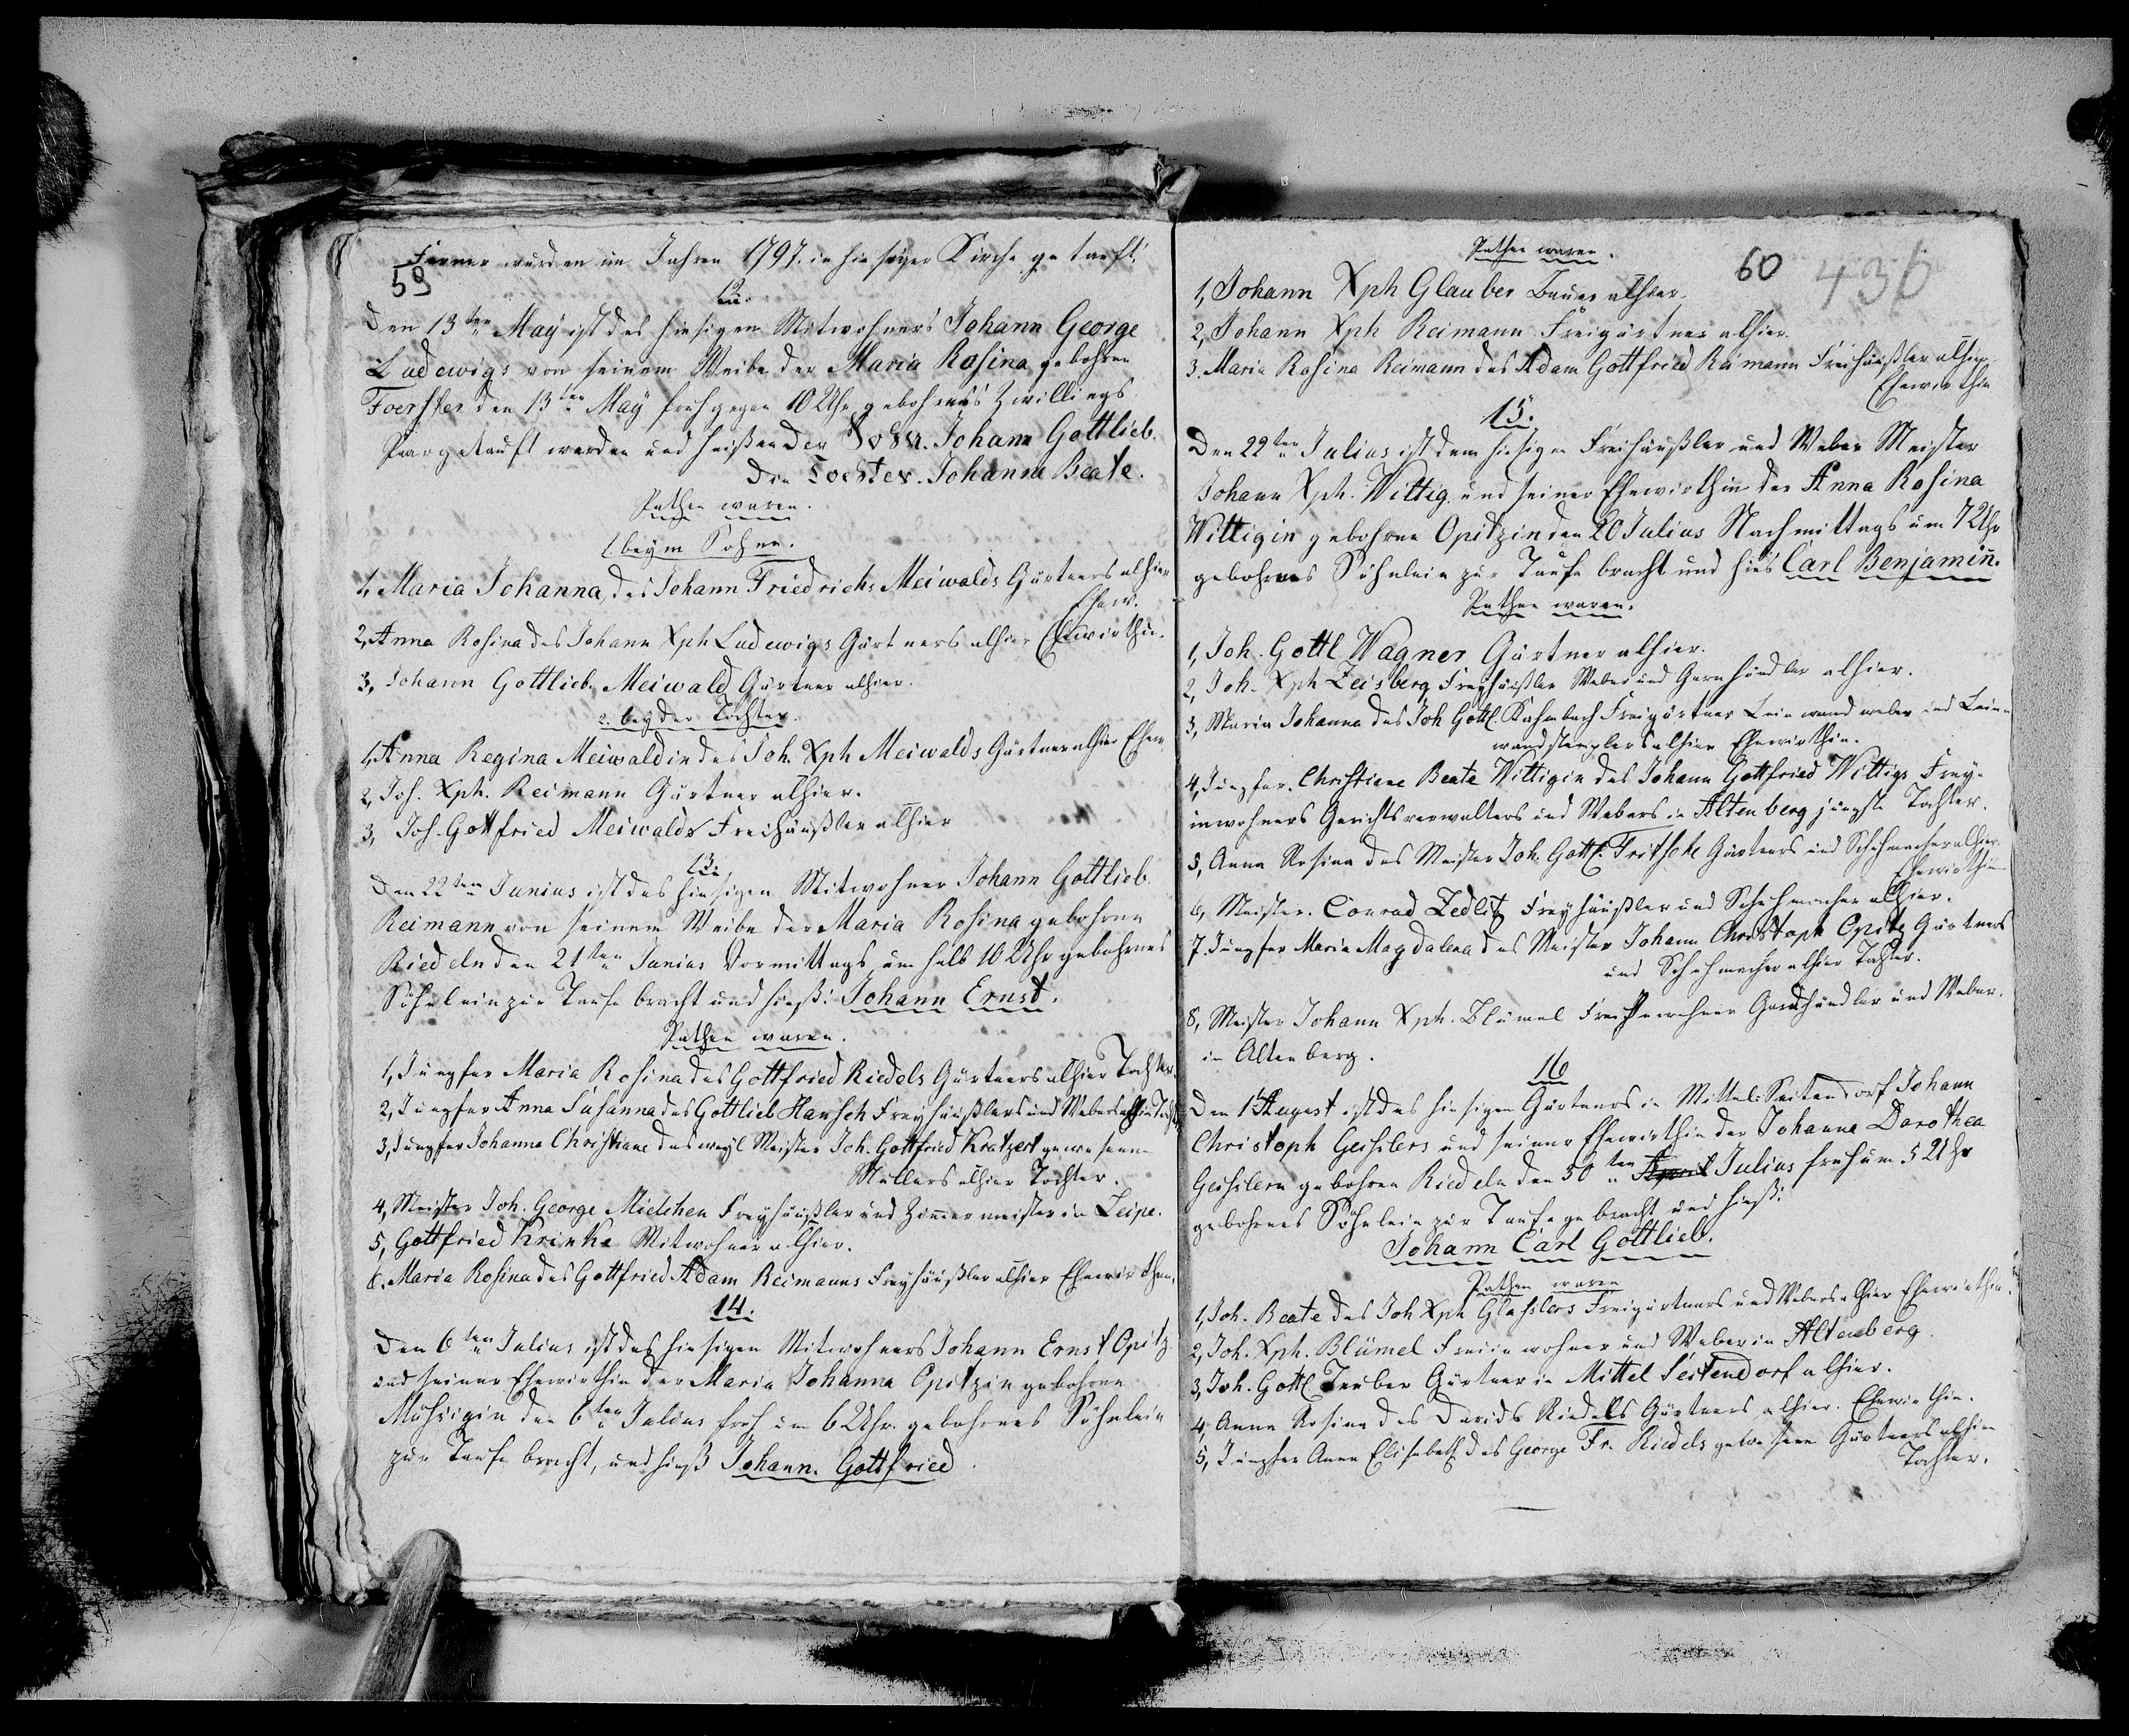 Ferner wurden im Jahren 1797. in hiesiger Kirche getauft.
59
12.
Den 13ten May ist des hiesigen Mitwohners Johann George
Ludewigs von seinem Weibe der Maria Rosina gebohrne
Foerster den 13ten May früh gegen 10 Uhr gebohrnes Zwillings
Paar getauft worden und heißen Der Sohn. Johann Gottlieb.
Die Tochter. Johanna Beate.
Pathen waren.
1. beym Sohne.
1, Maria Johanna, des Johann Friedrichs Meiwalds Gärtners alhier
Ehew.
2, Anna Rosina des Johann Xph Ludewigs Gärtners alhier Ehewirthin.
3, Johann Gottlieb. Meiwald Gärtner alhier.
2. bey der Tochter.
1, Anna Regina Meiwaldin des Joh. Xph Meiwalds Gärtner alhier Ehew.
2, Joh. Xph. Reimann Gärtner alhier.
3, Joh. Gottfried Meiwalds Freihäußler alhier
13.
Den 22ten Junius ist des hiesigen Mitwohner Johann Gottlieb.
Reimann von seinem Weibe der Maria Rosina gebohrne
Riedeln den 21ten Junius Vormittags um halb 10 Uhr gebohrnes
Söhnlein zur Taufe bracht und hieß: Johann Ernst.
Pathen waren.
1, Jungfer Maria Rosina des Gottfried Riedels Gärtners alhier Tochter.
2, Jungfer Anna Susanna des Gottlieb Hansch Freyhäußlers und Webers alhier Tochter
3, Jungfer Johanna Christiane des weyl Meister Joh. Gottfried Kratzert gewesenen
Müllers alhier Tochter.
4, Meister Joh. George Mielchen Freyhäußler und Zimmermeister in Leipe.
5, Gottfried Krinke Mitwohner alhier.
6. Maria Rosina des Gottfried Adam Reimanns Freyhäußler alhier Ehewirthin.
14.
Den 6ten Julius ist des hiesigen Mitwohners Johann Ernst Opitz
und seiner Ehewirthin der Maria Johanna Opitzin gebohrne
Mühsigin den 6ten Julius früh um 6 Uhr. gebohrnes Söhnlein
zur Taufe bracht, und hieß Johann. Gottfried.
Pathen waren.
60 436
1, Johann Xph Glauber Bauer alhier.
2, Johann Xph Reimann Freigärtner alhier.
3. Maria Rosina Reimann des Adam Gottfried Reimann Freihäußler alhier
Ehewirthin
15.
Den 22ten Julius ist dem hiesigen Freihäußler und Weber Meister
Johann Xph. Wittig. und seiner Ehewirthin der Anna Rosina
Wittigin gebohrne Opitzin den 20 Julius Nachmittags um 7 Uhr
gebohrnes Söhnlein zur Taufe bracht und hies Carl Benjamin.
Pathen waren.
1, Joh. Gottl Wagner Gärtner alhier.
2, Joh. Xph Zeisberg Freyhäußler Weber und Garnhändler alhier.
3, Maria Johanna des Joh Gottl. Kahmbach Freigärtner Leinwandweber und Leinn
wandstemplers alhier Ehewirthin.
4, Jungfer. Christiane Beate Wittigin des Johann Gottfried Wittigs Frey-
inwohners Gerichtsverwalters und Webers in Altenberg jüngste Tochter.
5, Anna Rosina des Meister Joh. Gottl. Fritsche Gärtners und Schuhmacher alhier.
Ehewirthin
6, Meister. Conrad Zedlitz Freyhäußler und Schuhmacher alhier.
7. Jungfer Maria Magdalena des Meister Johann Christoph Opitz Gärtners
und Schuhmacher alhier Tochter.
8, Meister Johann Xph. Blümel Garnhändler und Weber.
in Altenberg.
16
Den 1 August ist des hiesigen Gärtners in Mittel-Seitendorf Johann
Christoph Geislers und seiner Ehewirthin der Johanna Dorothea
Geislern gebohrne Riedeln den 30ten April Julius früh um 5 Uhr
gebohrnes Söhnlein zur Taufe gebracht und hieß:
Johann Carl Gottlieb.
Pathen waren
1, Joh. Beate des Joh Xph Glasilers Freigärtners und Webers alhier Ehewirthin.
2, Joh. Xph. Blümel Freiinwohner und Weber in Altenberg.
3, Joh. Gottl Teuber Gärtner in Mittel Seitendorf alhier.
4, Anna Rosina des Davids Riedels Gärtners alhier. Ehewirthin.
5, Jungfer Anna Elisabeth des George Fr. Riedels gewesenen Gärtners alhier
Tochter.